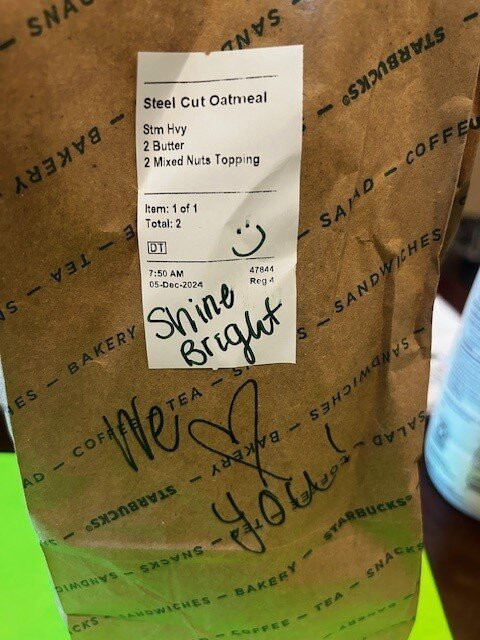 SNAC
SNACKS
STARBUCKS®
Steel Cut Oatmeal
Stm Hvy
2 Butter
2 Mixed Nuts Topping
Item: 1 of 1
Total: 2
DT
7:50 AM 47844
05-Dec-2024 Reg 4
Shine
Bright
BAKERY
SALAD — COFFEE
TEA
BAKERY
SANDWICHES
TEA
SANDWICHES
COFFEE
BAKERY
SALAD
We ♡
you!
STARBUCKS®
COFFEE
STARBUCKS®
SANDWICHES — SNACKS — TEA
SANDWICHES — BAKERY — TEA — SNACKS
COFFEE